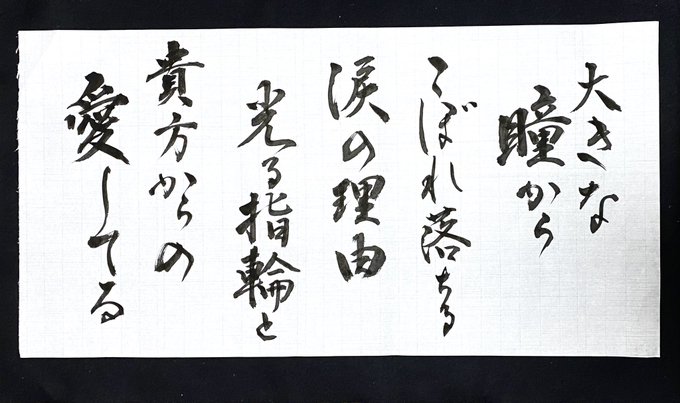 大きな
瞳から
こぼれ落ちる
涙の理由
光る指輪と
貴方からの
愛してる